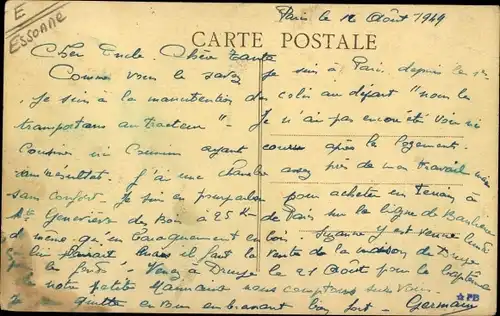 E
ESSONNE
Paris le 12 Août 1949
CARTE POSTALE
Cher Oncle. Chère Tante
Comme vous le savez je suis à Paris depuis le
je suis à la manutention des colis au départ "nous les
transportons au tracteur" - Je n'ai pas encore vu ni
Cousine ni Cousin ayant couru après le logement
sans résultat j'ai une chambre assez près de mon travail mais
sans confort. je suis en pour acheter un terrain à
Ste Geneviève des Bois à 25 Km de Paris sur la ligne de Banlieue
Suzanne y est venue lundi
il faut la vente de la maison de Druye
le fonds. Venez à Druye le 21 Août pour le baptême
de notre petite nous comptons sur vous.
Je vous quitte en vous embrassant bien fort - Germain
PB